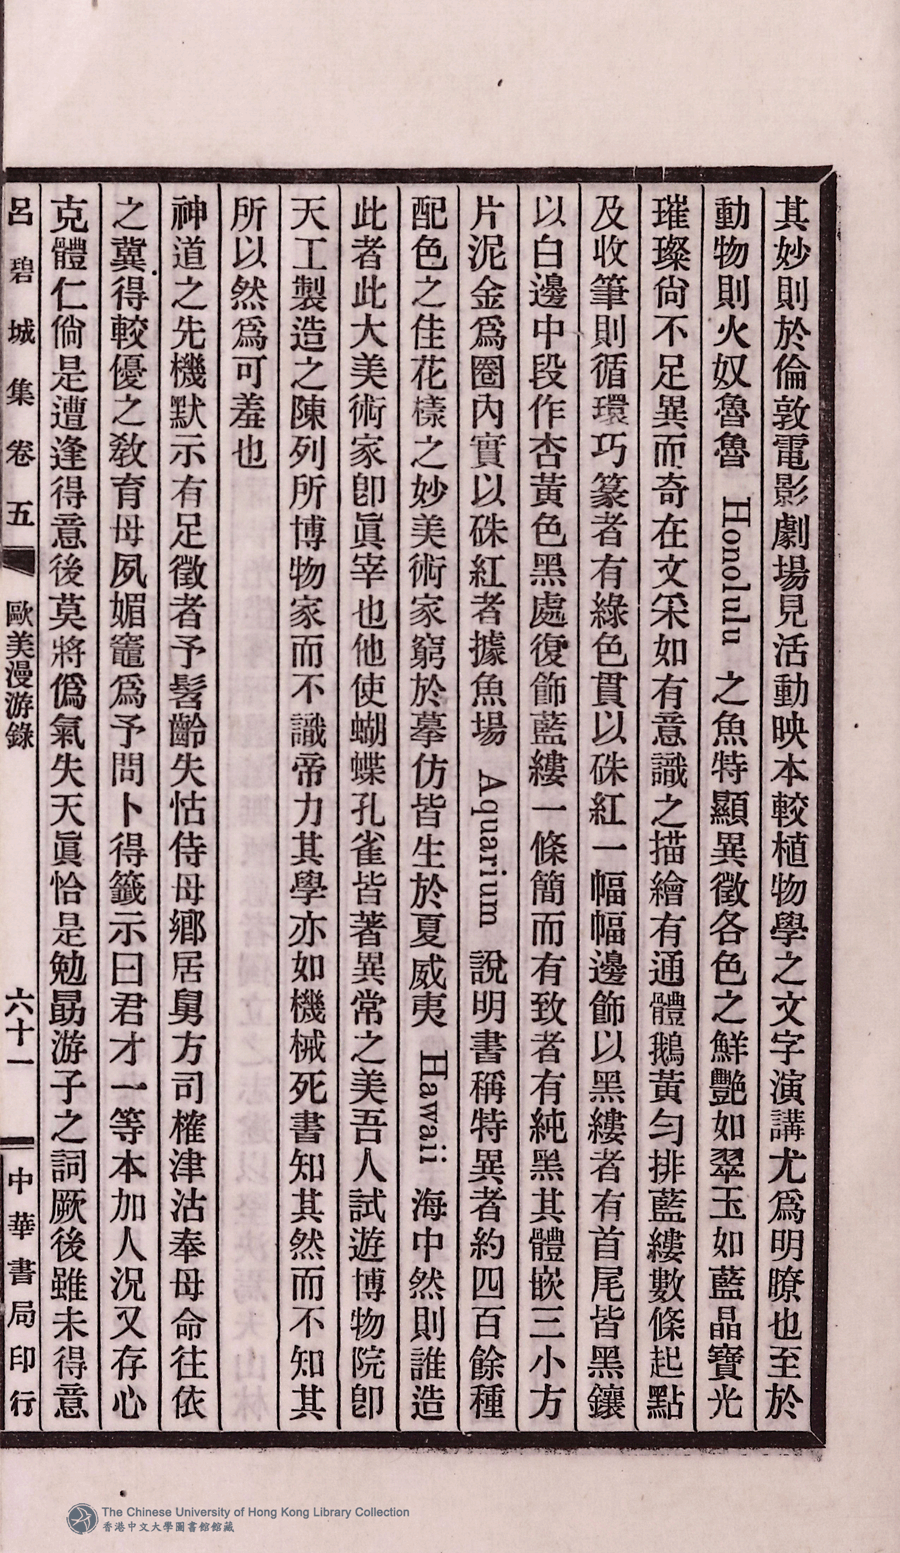 其妙則於倫敦電影劇場見活動映本較植物學之文字演講尤爲明暸也至於
動物則火奴魯魯 Honolulu 之魚特顯異徵各色之鮮艷如翠玉如藍晶寶光
璀璨尙不足異而奇在文采如有意識之描繪有通體鵝黃勻排藍縷數條起點
及收筆則循環巧篆者有綠色貫以硃紅一幅幅邊飾以黑縷者有首尾皆黑鑲
以白邊中段作杏黃色黑處復飾藍縷一條簡而有致者有純黑其體嵌三小方
片泥金爲圈內實以硃紅者據魚場 Aquarium 說明書稱特異者約四百餘種
配色之佳花樣之妙美術家窮於摹仿皆生於夏威夷 Hawaii 海中然則誰造
此者此大美術家卽眞宰也他使蝴蝶孔雀皆著異常之美吾人試遊博物院卽
天工製造之陳列所博物家而不識帝力其學亦如機械死書知其然而不知其
所以然爲可羞也
神道之先機默示有足徵者予髫齡失怙侍母鄉居舅方司榷津沽奉母命往依
之冀得較優之敎育母夙媚竈爲予問卜得籤示曰君才一等本加人況又存心
克體仁倘是遭逢得意後莫將僞氣失天眞恰是勉勗游子之詞厥後雖未得意
呂碧城集卷五 歐美漫游錄 六十一 中華書局印行
The Chinese University of Hong Kong Library Collection
香港中文大學圖書館館藏